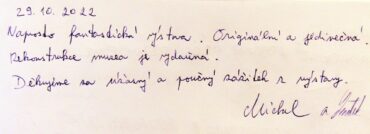 29. 10. 2022
Naprosto fantastická výstava. Originální a jedinečná.
Rekonstrukce muzea je vydařená.
Děkujeme za úžasný a poučný zážitek z výstavy.
Michal a